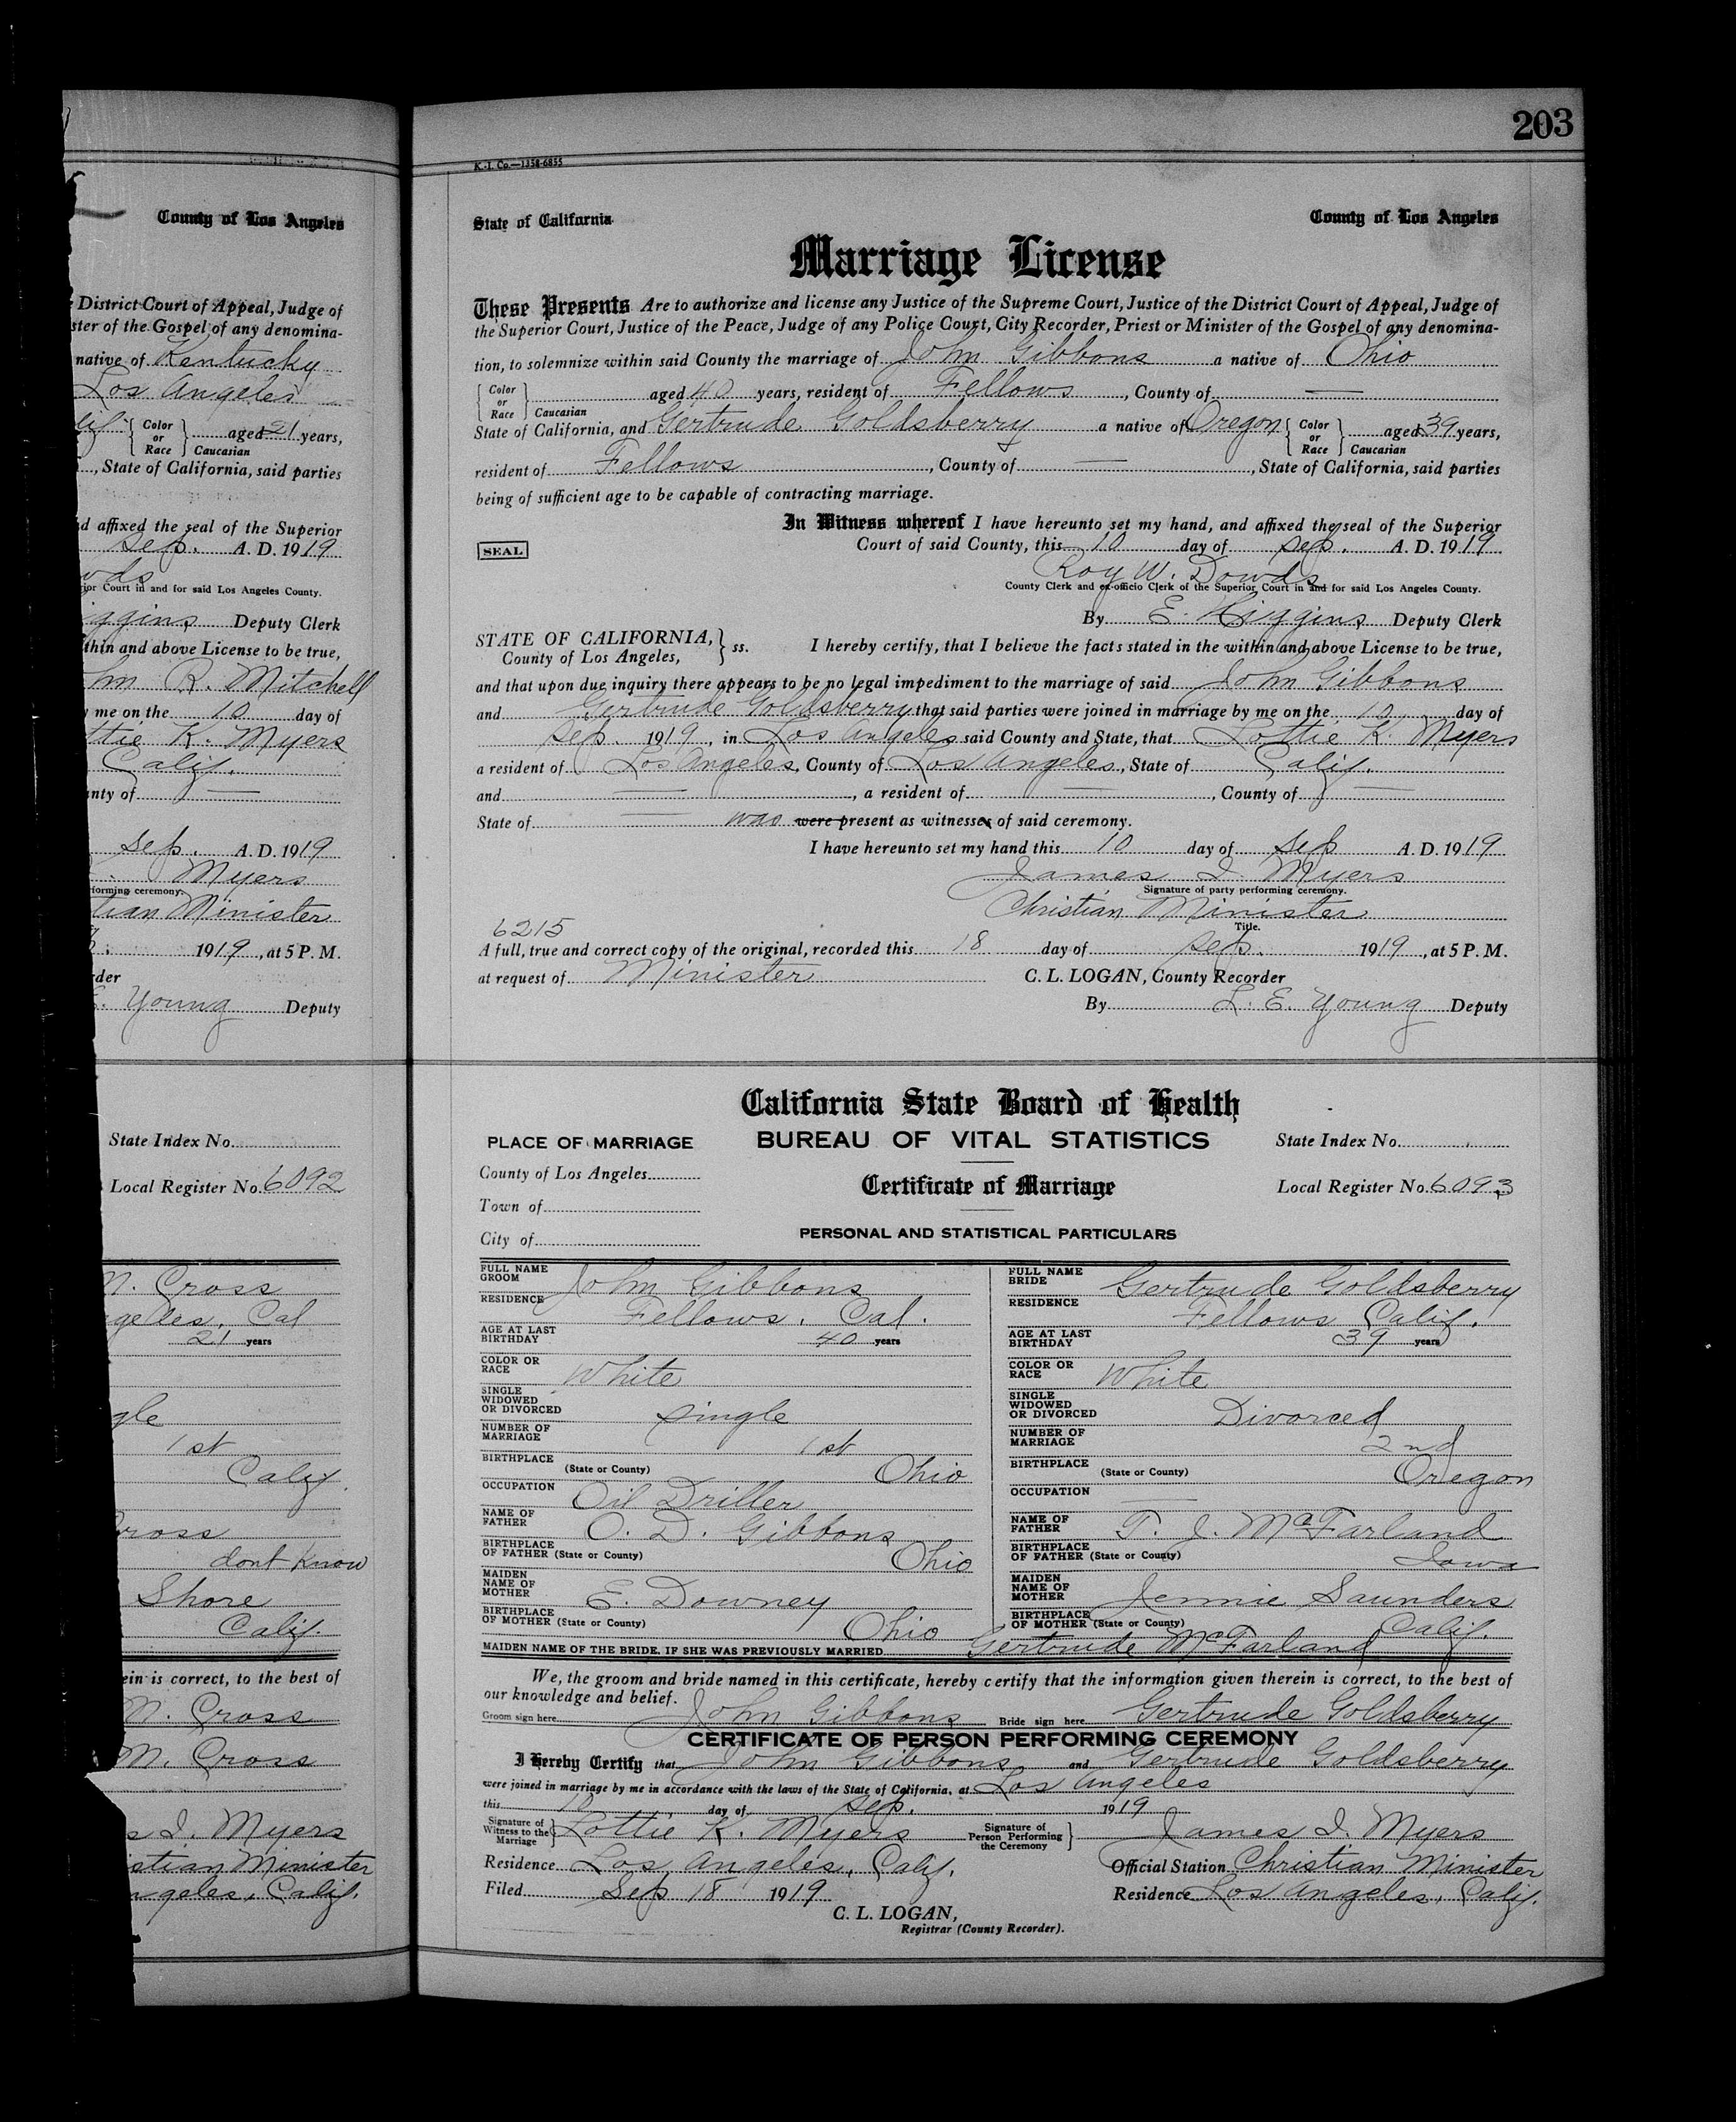 203
K.-I. Co.—1358-6855
County of Los Angeles
District Court of Appeal, Judge of
ster of the Gospel of any denomina-
native of Kentucky
Los Angeles
lif { Color or Race } Caucasian aged 21 years,
, State of California, said parties
d affixed the seal of the Superior
Sep. A. D. 1919
wds
ior Court in and for said Los Angeles County.
iggins Deputy Clerk
thin and above License to be true,
hn R. Mitchell
y me on the 10 day of
ttie K. Myers
Calif.
unty of —
Sep. A. D. 1919
Myers
forming ceremony.
tian Minister
1919, at 5 P. M.
rder
E. Young Deputy
State Index No.
Local Register No. 6092
M. Cross
ngeles, Cal
21 years
gle
1st
Calif.
Cross
dont know
Shore
Calif.
ein is correct, to the best of
M. Cross
M. Cross
s I. Myers
istian Minister
ngeles, Calif.
State of California County of Los Angeles
Marriage License
These Presents Are to authorize and license any Justice of the Supreme Court, Justice of the District Court of Appeal, Judge of
the Superior Court, Justice of the Peace, Judge of any Police Court, City Recorder, Priest or Minister of the Gospel of any denomina-
tion, to solemnize within said County the marriage of John Gibbons a native of Ohio
{ Color or Race Caucasian aged 40 years, resident of Fellows, County of —
State of California, and Gertrude Goldsberry a native of Oregon { Color or Race } Caucasian aged 39 years,
resident of Fellows, County of —, State of California, said parties
being of sufficient age to be capable of contracting marriage.
In Witness whereof I have hereunto set my hand, and affixed the seal of the Superior
SEAL Court of said County, this 10 day of Sep. A. D. 1919
Roy W. Dowds
County Clerk and ex-officio Clerk of the Superior Court in and for said Los Angeles County.
By E. Higgins Deputy Clerk
STATE OF CALIFORNIA, County of Los Angeles, } ss. I hereby certify, that I believe the facts stated in the within and above License to be true,
and that upon due inquiry there appears to be no legal impediment to the marriage of said John Gibbons
and Gertrude Goldsberry that said parties were joined in marriage by me on the 10 day of
Sep. 1919, in Los Angeles said County and State, that Lottie K. Myers
a resident of Los Angeles, County of Los Angeles, State of Calif.
and —, a resident of —, County of —
State of — was were present as witnesses of said ceremony.
I have hereunto set my hand this 10 day of Sep A. D. 1919
James I. Myers
Signature of party performing ceremony.
Christian Minister
Title.
6215
A full, true and correct copy of the original, recorded this 18 day of Sep. 1919, at 5 P. M.
at request of Minister C. L. LOGAN, County Recorder
By L. E. Young Deputy
California State Board of Health
PLACE OF MARRIAGE BUREAU OF VITAL STATISTICS State Index No.
County of Los Angeles
Certificate of Marriage Local Register No. 6093
Town of
PERSONAL AND STATISTICAL PARTICULARS
City of
FULL NAME GROOM John Gibbons FULL NAME BRIDE Gertrude Goldsberry
RESIDENCE Fellows, Cal. RESIDENCE Fellows Calif.
AGE AT LAST BIRTHDAY 40 years AGE AT LAST BIRTHDAY 39 years
COLOR OR RACE White COLOR OR RACE White
SINGLE WIDOWED OR DIVORCED Single SINGLE WIDOWED OR DIVORCED Divorced
NUMBER OF MARRIAGE 1st NUMBER OF MARRIAGE 2nd
BIRTHPLACE (State or County) Ohio BIRTHPLACE (State or County) Oregon
OCCUPATION Oil Driller OCCUPATION —
NAME OF FATHER O. D. Gibbons NAME OF FATHER T. J. McFarland
BIRTHPLACE OF FATHER (State or County) Ohio BIRTHPLACE OF FATHER (State or County) Iowa
MAIDEN NAME OF MOTHER E. Downey MAIDEN NAME OF MOTHER Jennie Saunders
BIRTHPLACE OF MOTHER (State or County) Ohio BIRTHPLACE OF MOTHER (State or County) Calif.
MAIDEN NAME OF THE BRIDE, IF SHE WAS PREVIOUSLY MARRIED Gertrude McFarland
We, the groom and bride named in this certificate, hereby certify that the information given therein is correct, to the best of
our knowledge and belief.
Groom sign here John Gibbons Bride sign here Gertrude Goldsberry
CERTIFICATE OF PERSON PERFORMING CEREMONY
I Hereby Certify that John Gibbons and Gertrude Goldsberry
were joined in marriage by me in accordance with the laws of the State of California, at Los Angeles
this 10 day of Sep. 1919
Signature of Witness to the Marriage } Lottie K. Myers Signature of Person Performing the Ceremony } James I. Myers
Residence Los Angeles, Calif. Official Station Christian Minister
Filed Sep 18 1919 Residence Los Angeles, Calif.
C. L. LOGAN,
Registrar (County Recorder).